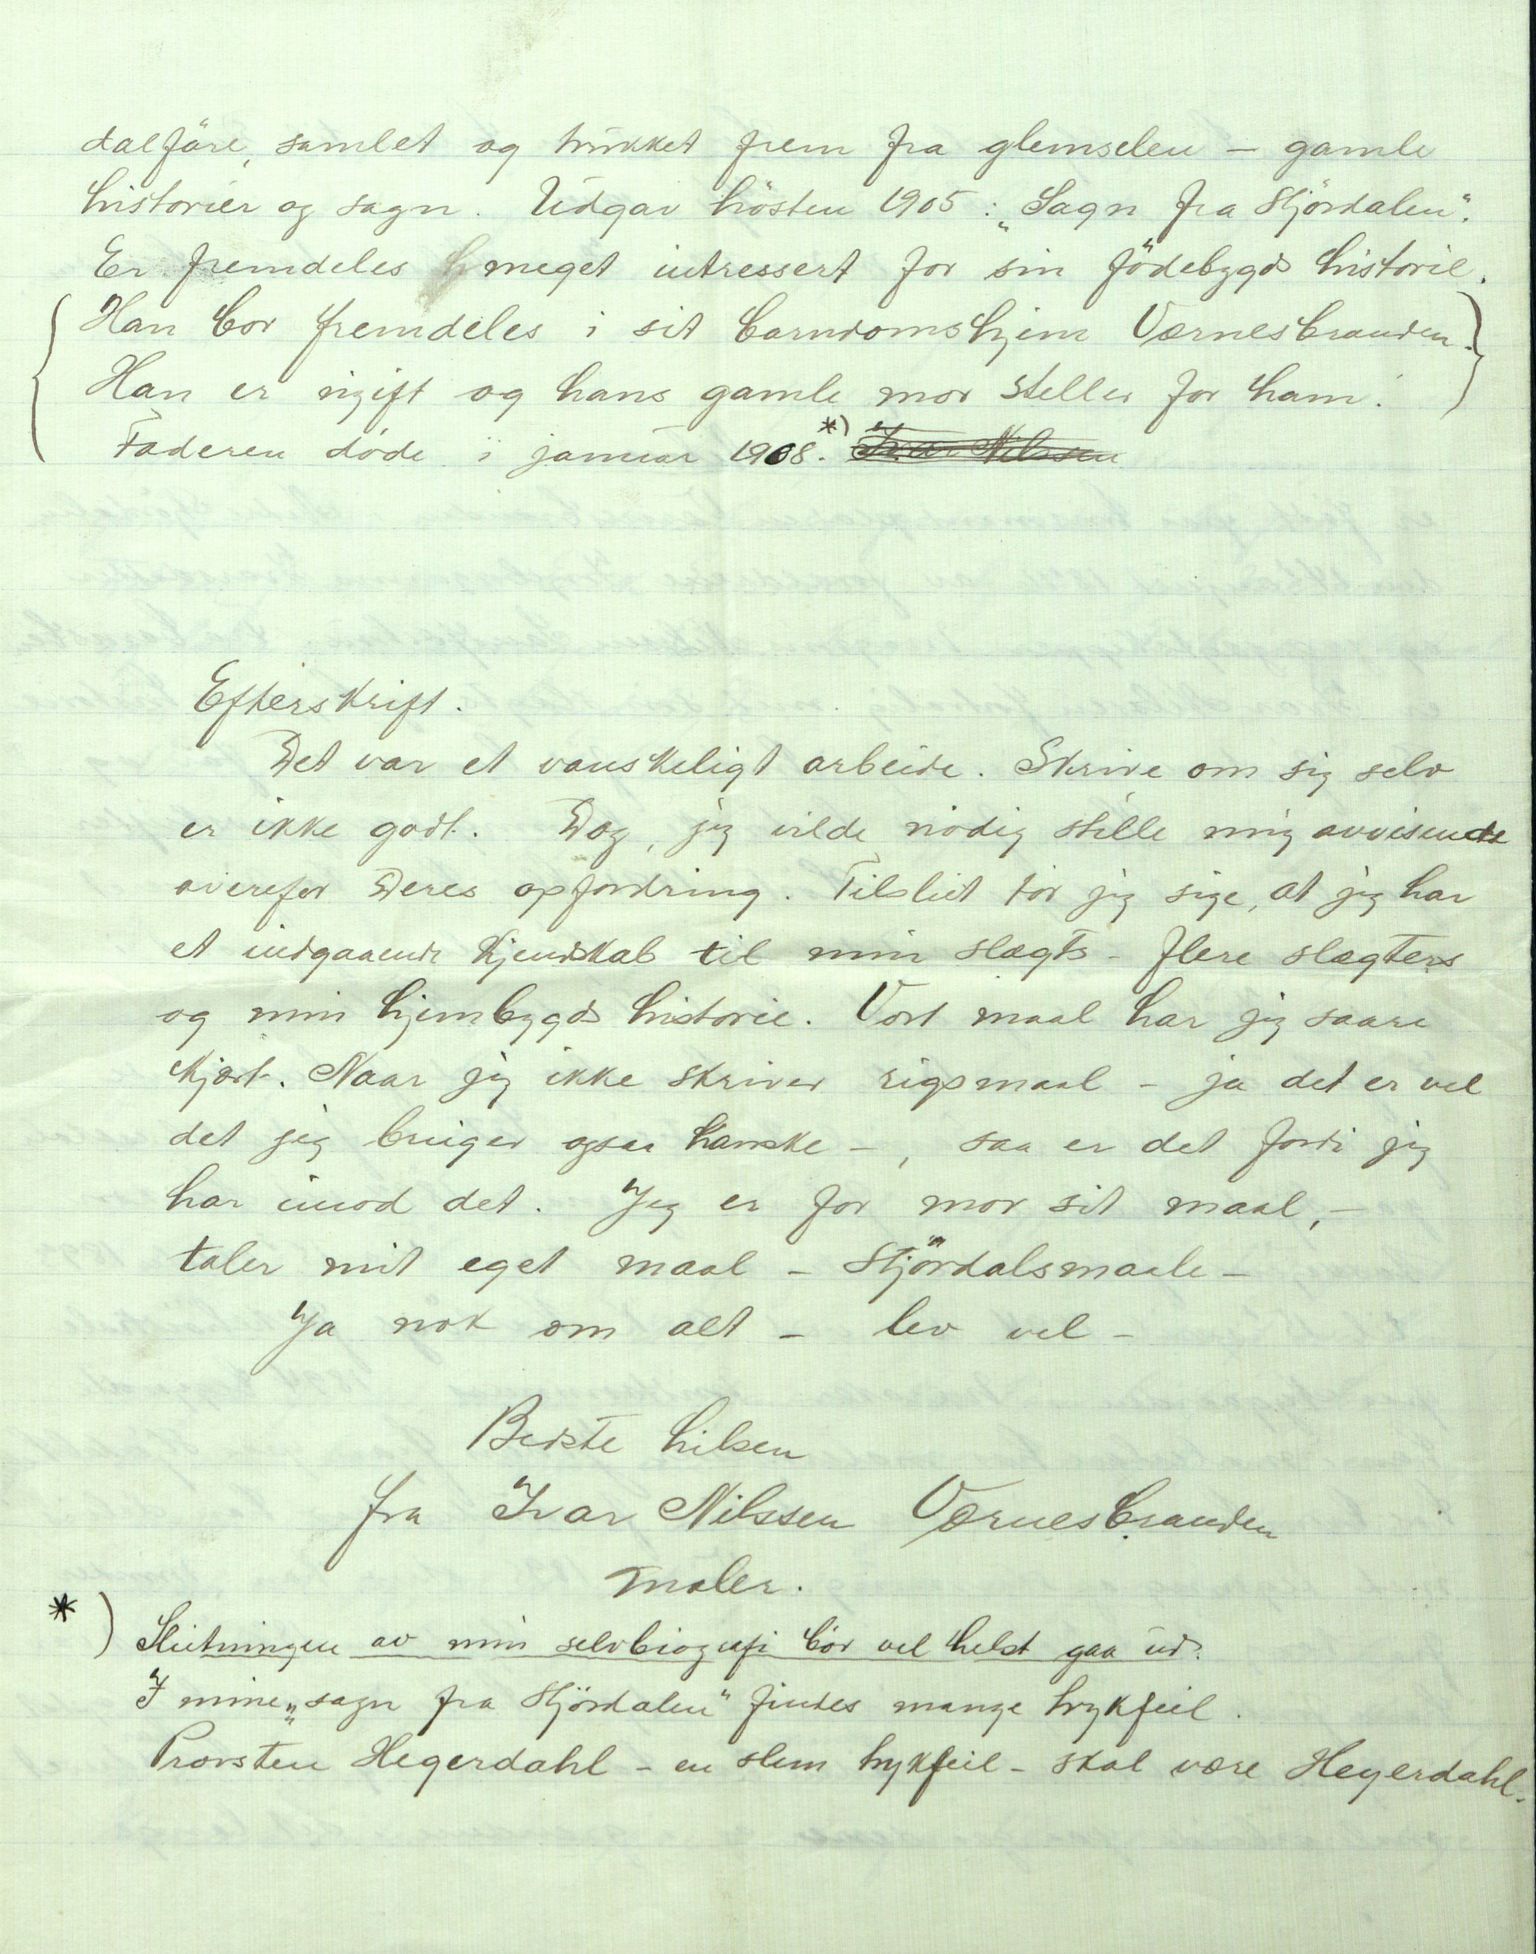 dalføre, samlet og trukket frem fra glemselen – gamle
historier og sagn. Udgav hösten 1905: „Sagn fra Stjördalen“.
Er fremdeles meget intressert for sin födebygds historie.
Han bor fremdeles i sit barndomshjem Værnesbranden.
Han er ugift og hans gamle mor steller for ham.
Faderen døde i januar 1908. *) Ivar Nilssen
Efterskrift.
Det var et vanskeligt arbeide. Skrive om sig selv
er ikke godt. Dog, jeg vilde nödig stille mig avvisende
overefor Deres opfordring. Tilslut tör jeg sige, at jeg har
et indgaaende kjendskab til min slægts – flere slægters
og min hjembygds historie. Vort maal har jeg saare
kjært. Naar jeg ikke skriver rigsmaal – ja det er vel
det jeg bruger ogsaa kanske –, saa er det fordi jeg
har imod det. Jeg er for mor sit maal, –
taler mit eget maal – Stjördalsmaale –
Ja nok om alt – lev vel –
Bedste hilsen
fra Ivar Nilssen Værnesbranden
maler.
*) Slutningen av min selvbiografi bör vel helst gaa ud.
I mine „sagn fra Stjördalen“ findes mange trykfeil.
Provsten Hegerdahl – en slem trykfeil – skal være Heyerdahl.